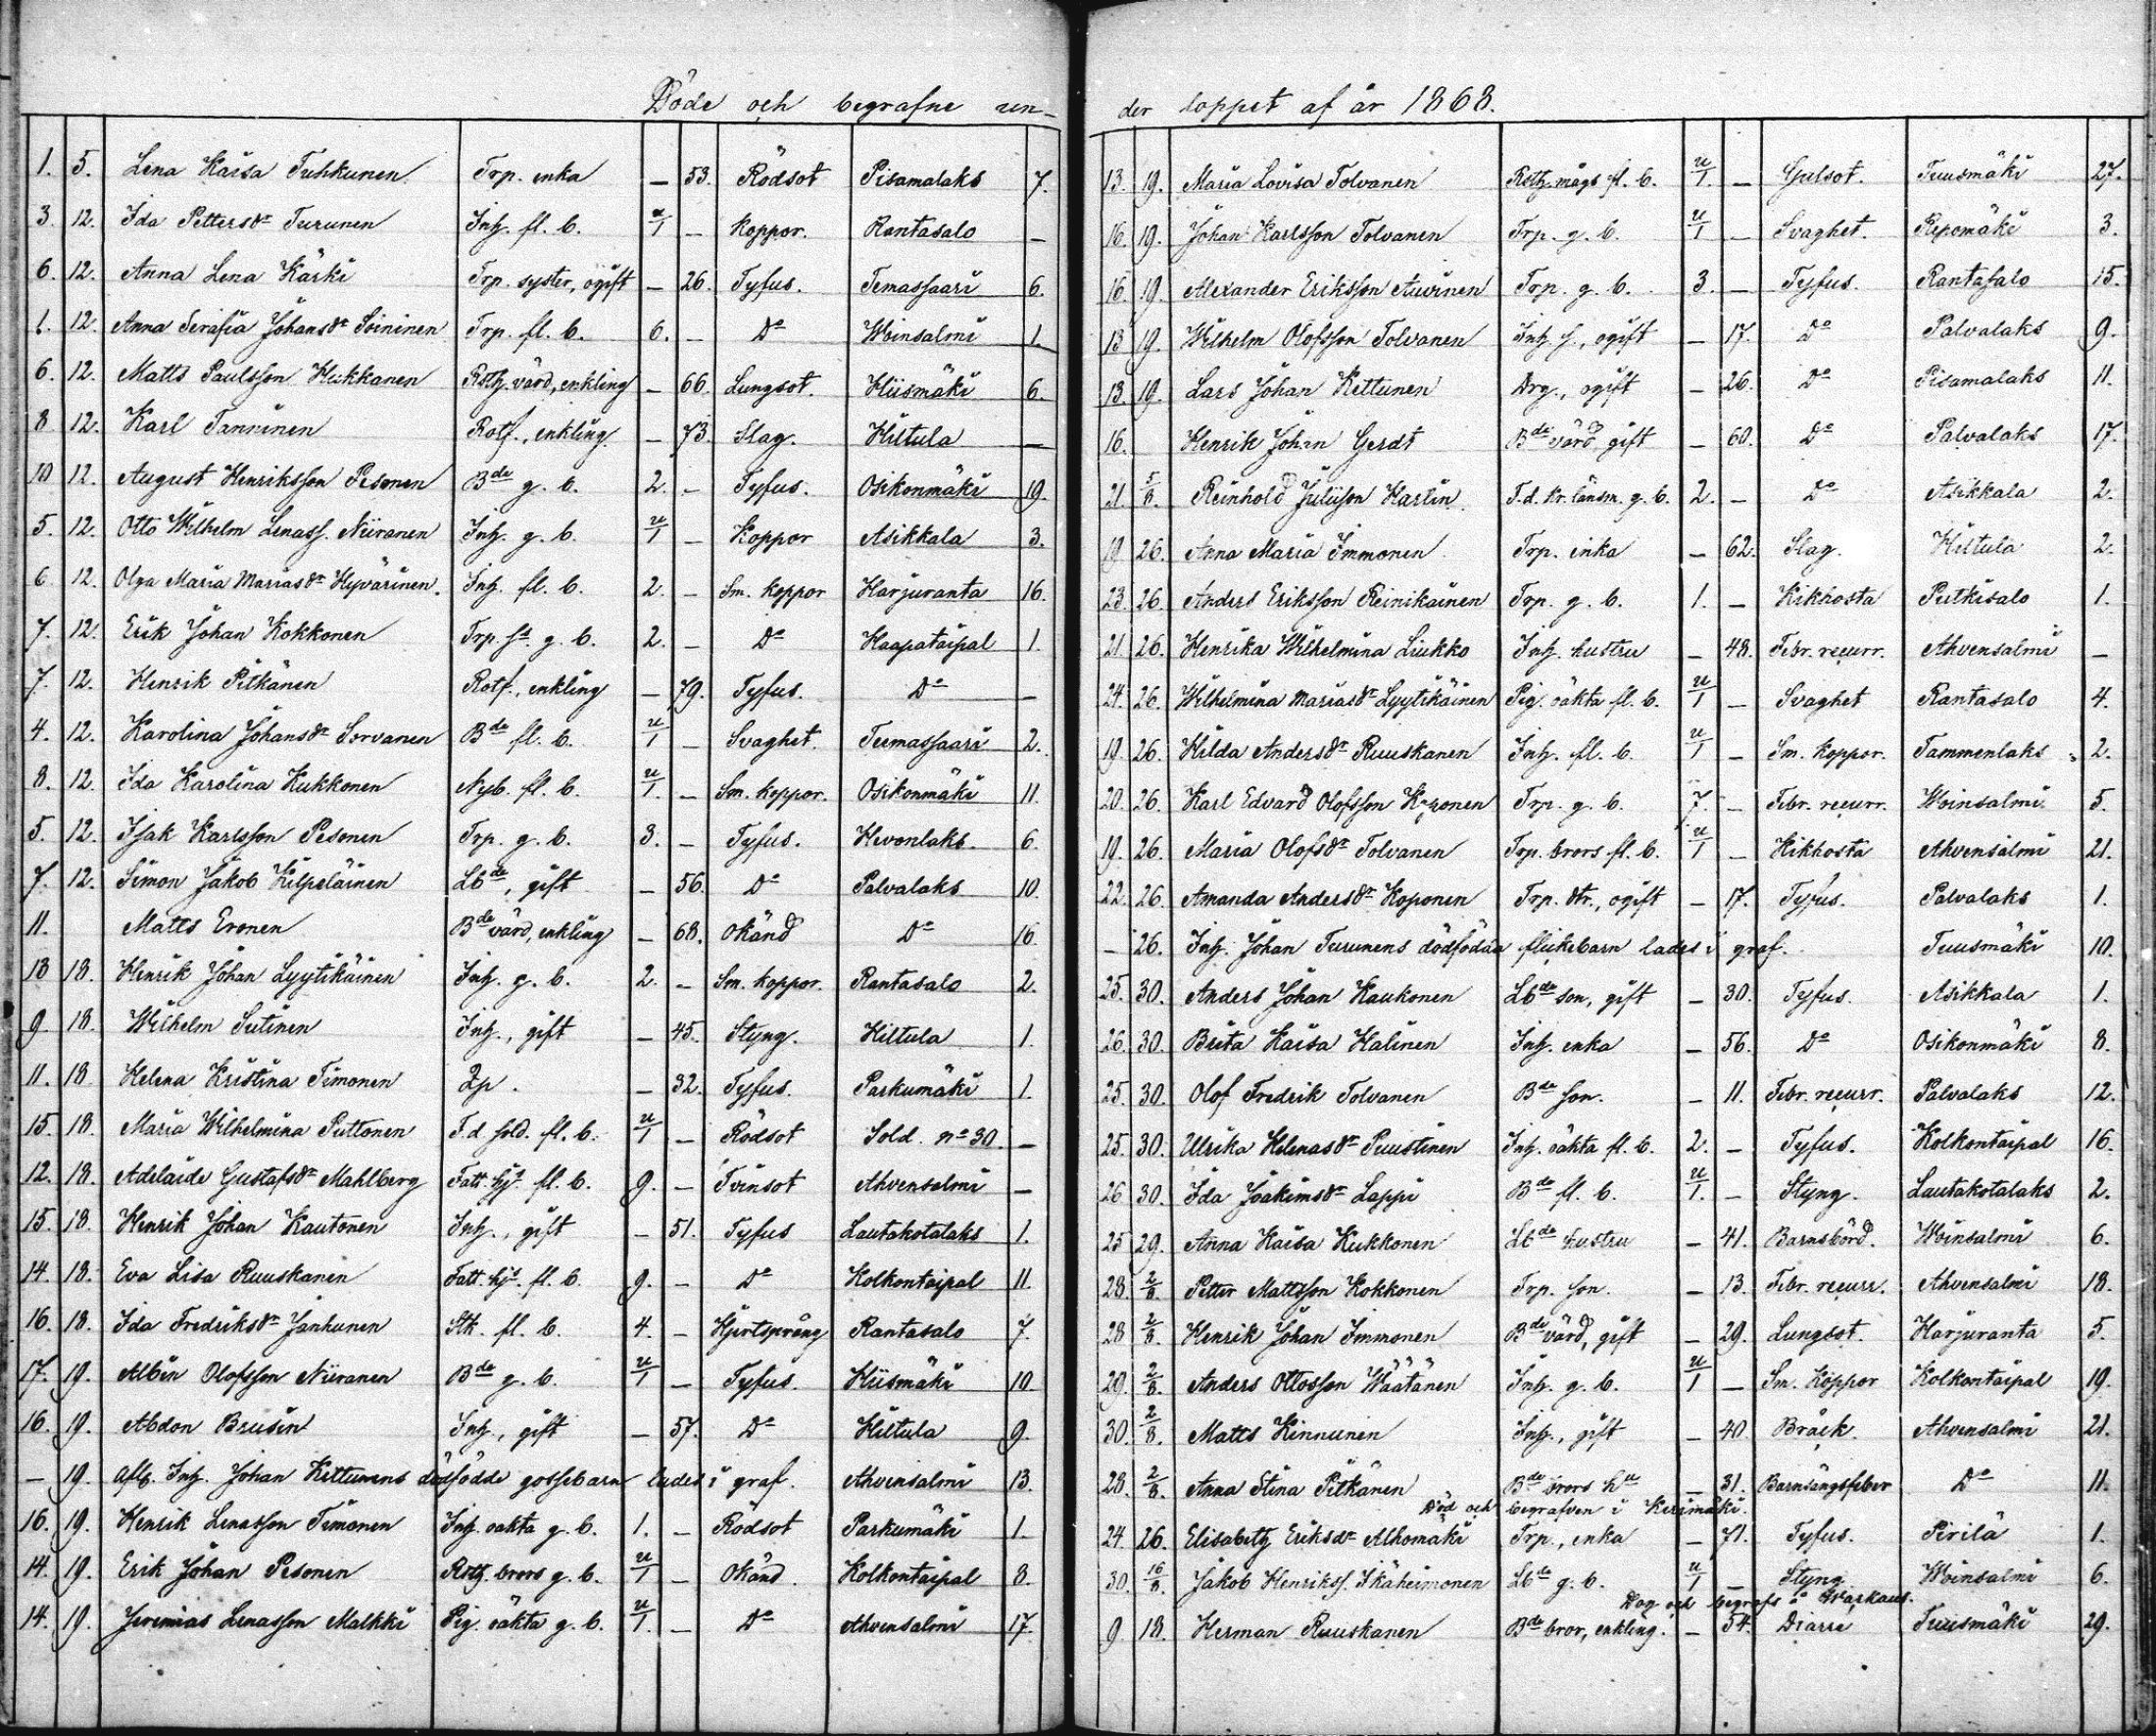 Döde och begrafne un-
1. 5. Lena Kaisa Tuhkunen Trp. enka — 53. Rödsot Pisamalaks 7.
3. 12. Ida Pettersdr Turunen Inh. fl. b. u/1 — Koppor. Rantasalo —
6. 12. Anna Lena Kärki Trp. syster, ogift — 26. Tyfus. Temassaari 6.
6. 12. Anna Serafia Johansdr Soininen Trp. fl. b. 6. — Do Woinsalmi 1.
6. 12. Matts Paulsson Heikkanen Roth. värd, enkling — 66. Lungsot. Hiismäki 6.
8 12. Karl Tanninen Rotf., enkling. — 73. Slag. Hiltula —
10 12. August Henriksson Pesonen Bde g. b. 2. — Tyfus. Osikonmäki 19.
5. 12. Otto Wilhelm Lenass. Niiranen Inh. g. b. u/1 — Koppor Asikkala 3.
6 12. Olga Maria Mariasdr Hyvärinen. Inh. fl. b. 2. — Sm. koppor Harjuranta 16.
7. 12. Erik Johan Kokkonen Trp. g. b. 2. — Do Haapataipal 1.
7. 12. Henrik Pitkänen Rotf., enkling — 79. Tyfus. Do —
4. 12. Karolina Johansdr Sorvanen Bde fl. b. u/1 — Svaghet. Temassaari 2.
8. 12. Ida Karolina Kukkonen Nyb. fl. b. u/1. — Sm. koppor. Osikonmäki 11.
5. 12. Isak Karlsson Pesonen Trp. g. b. 3. — Tyfus. Hevonlaks. 6.
7. 12. Simon Jakob Kilpeläinen Lbde, gift — 56. Do Palvalaks 10.
11. Matts Eronen Bde värd, enkling — 68. Okänd Do 16
13 18. Henrik Johan Lyytikäinen Inh. g. b. 2. — Sm. koppor. Rantasalo 2.
9. 18. Wilhelm Sutinen Inh., gift — 45. Styng. Hiltula 1.
11. 18 Helena Kristina Timonen — 32. Tyfus. Parkumäki 1.
15. 18. Maria Wilhelmina Puttonen F.d sold. fl. b. u/1 — Rödsot Sold. no 30. —
12. 18. Adelaide Gustafsdr Mahlberg Fatt. hj. fl. b. 9. — Tvinsot Ahvensalmi —
15. 18. Henrik Johan Kautonen Inh., gift — 51. Tyfus Lautakotalaks 1.
14. 18. Eva Lisa Ruuskanen Fatt. hj. fl. b. 9. — Do Kolkontaipal 11.
16. 18. Ida Fredriksdr Janhunen Stk. fl. b. 4. — Hjertsprång Rantasalo 7.
17. 19. Albin Olofsson Niiranen Bde g. b. u/1 — Tyfus. Hiismäki 10.
16. 19. Abdon Brusin Inh., gift — 57. Do Hiltula 9.
— 19. Afl. Inh. Johan Kettunens dödfödde gossebarn lades i graf. Ahvensalmi 13.
16. 19. Henrik Lenasson Timonen Inh. oäkta g. b. 1. — Rödsot Parkumäki 1.
14. 19. Erik Johan Pesonen Roth. brors g. b. u/1 — Okänd. Kolkontaipal 8.
14. 19. Jeremias Lenasson Malkki Pig. oäkta g. b. u/1. — Do Ahvensalmi 17.
der loppet af år 1868.
13. 19. Maria Lovisa Tolvanen Roth. mågs fl. b. u/1. — Gulsot. Tuusmäki 27.
16. 19. Johan Karlsson Tolvanen Trp. g. b. u/1 — Svaghet. Repomäki 3.
16. 19. Alexander Eriksson Auvinen Trp. g. b. 3. — Tyfus. Rantasalo 15.
13 19. Wilhelm Olofsson Tolvanen Inh. s., ogift — 17. Do Palvalaks 9.
13. 19. Lars Johan Kettunen Drg., ogift — 26. Do Pisamalaks 11.
16. Henrik Johan Gerdt Bde värd, gift — 60. Do Palvalaks 17.
21. 5/8. Reinhold Juliison Hartin. F.d. kr. länsm. g. b. 2. — Do Asikkala 2.
19 26. Anna Maria Immonen Trp. enka — 62. Slag. Hiltula 2.
23. 26. Anders Eriksson Reinikainen Trp. g. b. 1. — Kikhosta Putkisalo 1.
21. 26. Henrika Wilhelmina Liukko Inh. hustru — 48. Febr. recurr. Ahvensalmi —
24. 26. Wilhelmina Mariasdr Lyytikäinen Pig. oäkta fl. b. u/1 — Svaghet Rantasalo 4.
19. 26. Hilda Andersdr Ruuskanen Inh. fl. b. u/1 — Sm. koppor. Tammenlaks 2.
20. 26. Karl Edvard Olofsson Koponen Trp. g. b. 7. — Febr. recurr. Woinsalmi 5.
19. 26. Maria Olofsdr Tolvanen Trp. brors fl. b. u/1 — Kikhosta Ahvensalmi 21.
22. 26. Amanda Andersdr Koponen Trp. dtr., ogift — 17. Tyfus. Palvalaks 1.
— 26. Inh. Johan Turunens dödfödda flickebarn lades i graf. Tuusmäki 10.
25. 30. Anders Johan Kaukonen Lbde son, gift — 30. Tyfus. Asikkala 1.
26. 30. Brita Kaisa Halinen Inh. enka — 56. Do Osikonmäki 8.
25. 30. Olof Fredrik Tolvanen Bde son. — 11. Febr. recurr. Palvalaks 12.
25. 30. Ulrika Helenasdr Puustinen Inh. oäkta fl. b. 2. — Tyfus. Kolkontaipal 16.
26 30. Ida Joakimsdr Lappi Bde fl. b. u/1. — Styng. Lautakotalaks 2.
25 29. Anna Kaisa Kukkonen Lbde hustru — 41. Barnsbörd. Woinsalmi 6.
28. 2/8. Petter Mattsson Kokkonen Trp. son. — 13. Febr. recurr. Ahvensalmi 18.
28 2/8. Henrik Johan Immonen Bde värd, gift — 29. Lungsot. Harjuranta 5.
29. 2/8. Anders Ottosson Wäätänen Inh. g. b. u/1 — Sm. Koppor Kolkontaipal 19.
30. 2/8. Matts Kinnunen Inh., gift — 40. Bråck. Ahvensalmi 21.
28. 2/8. Anna Stina Pitkänen Bde brors hu — 31. Barnsängsfeber Do 11.
Död och begrafven i Kerimäki.
24. 26. Elisabeth Eriksdr Alhomäki Trp., enka — 71. Tyfus. Pirilä 1.
30. 16/8. Jakob Henrikss. Ikäheimonen Lbde g. b. u/1 — Styng Woinsalmi 6.
Dog och begrafs i Warkaus.
9. 18. Herman Ruuskanen Bde bror, enkling. — 54. Diarre Tuusmäki 29.